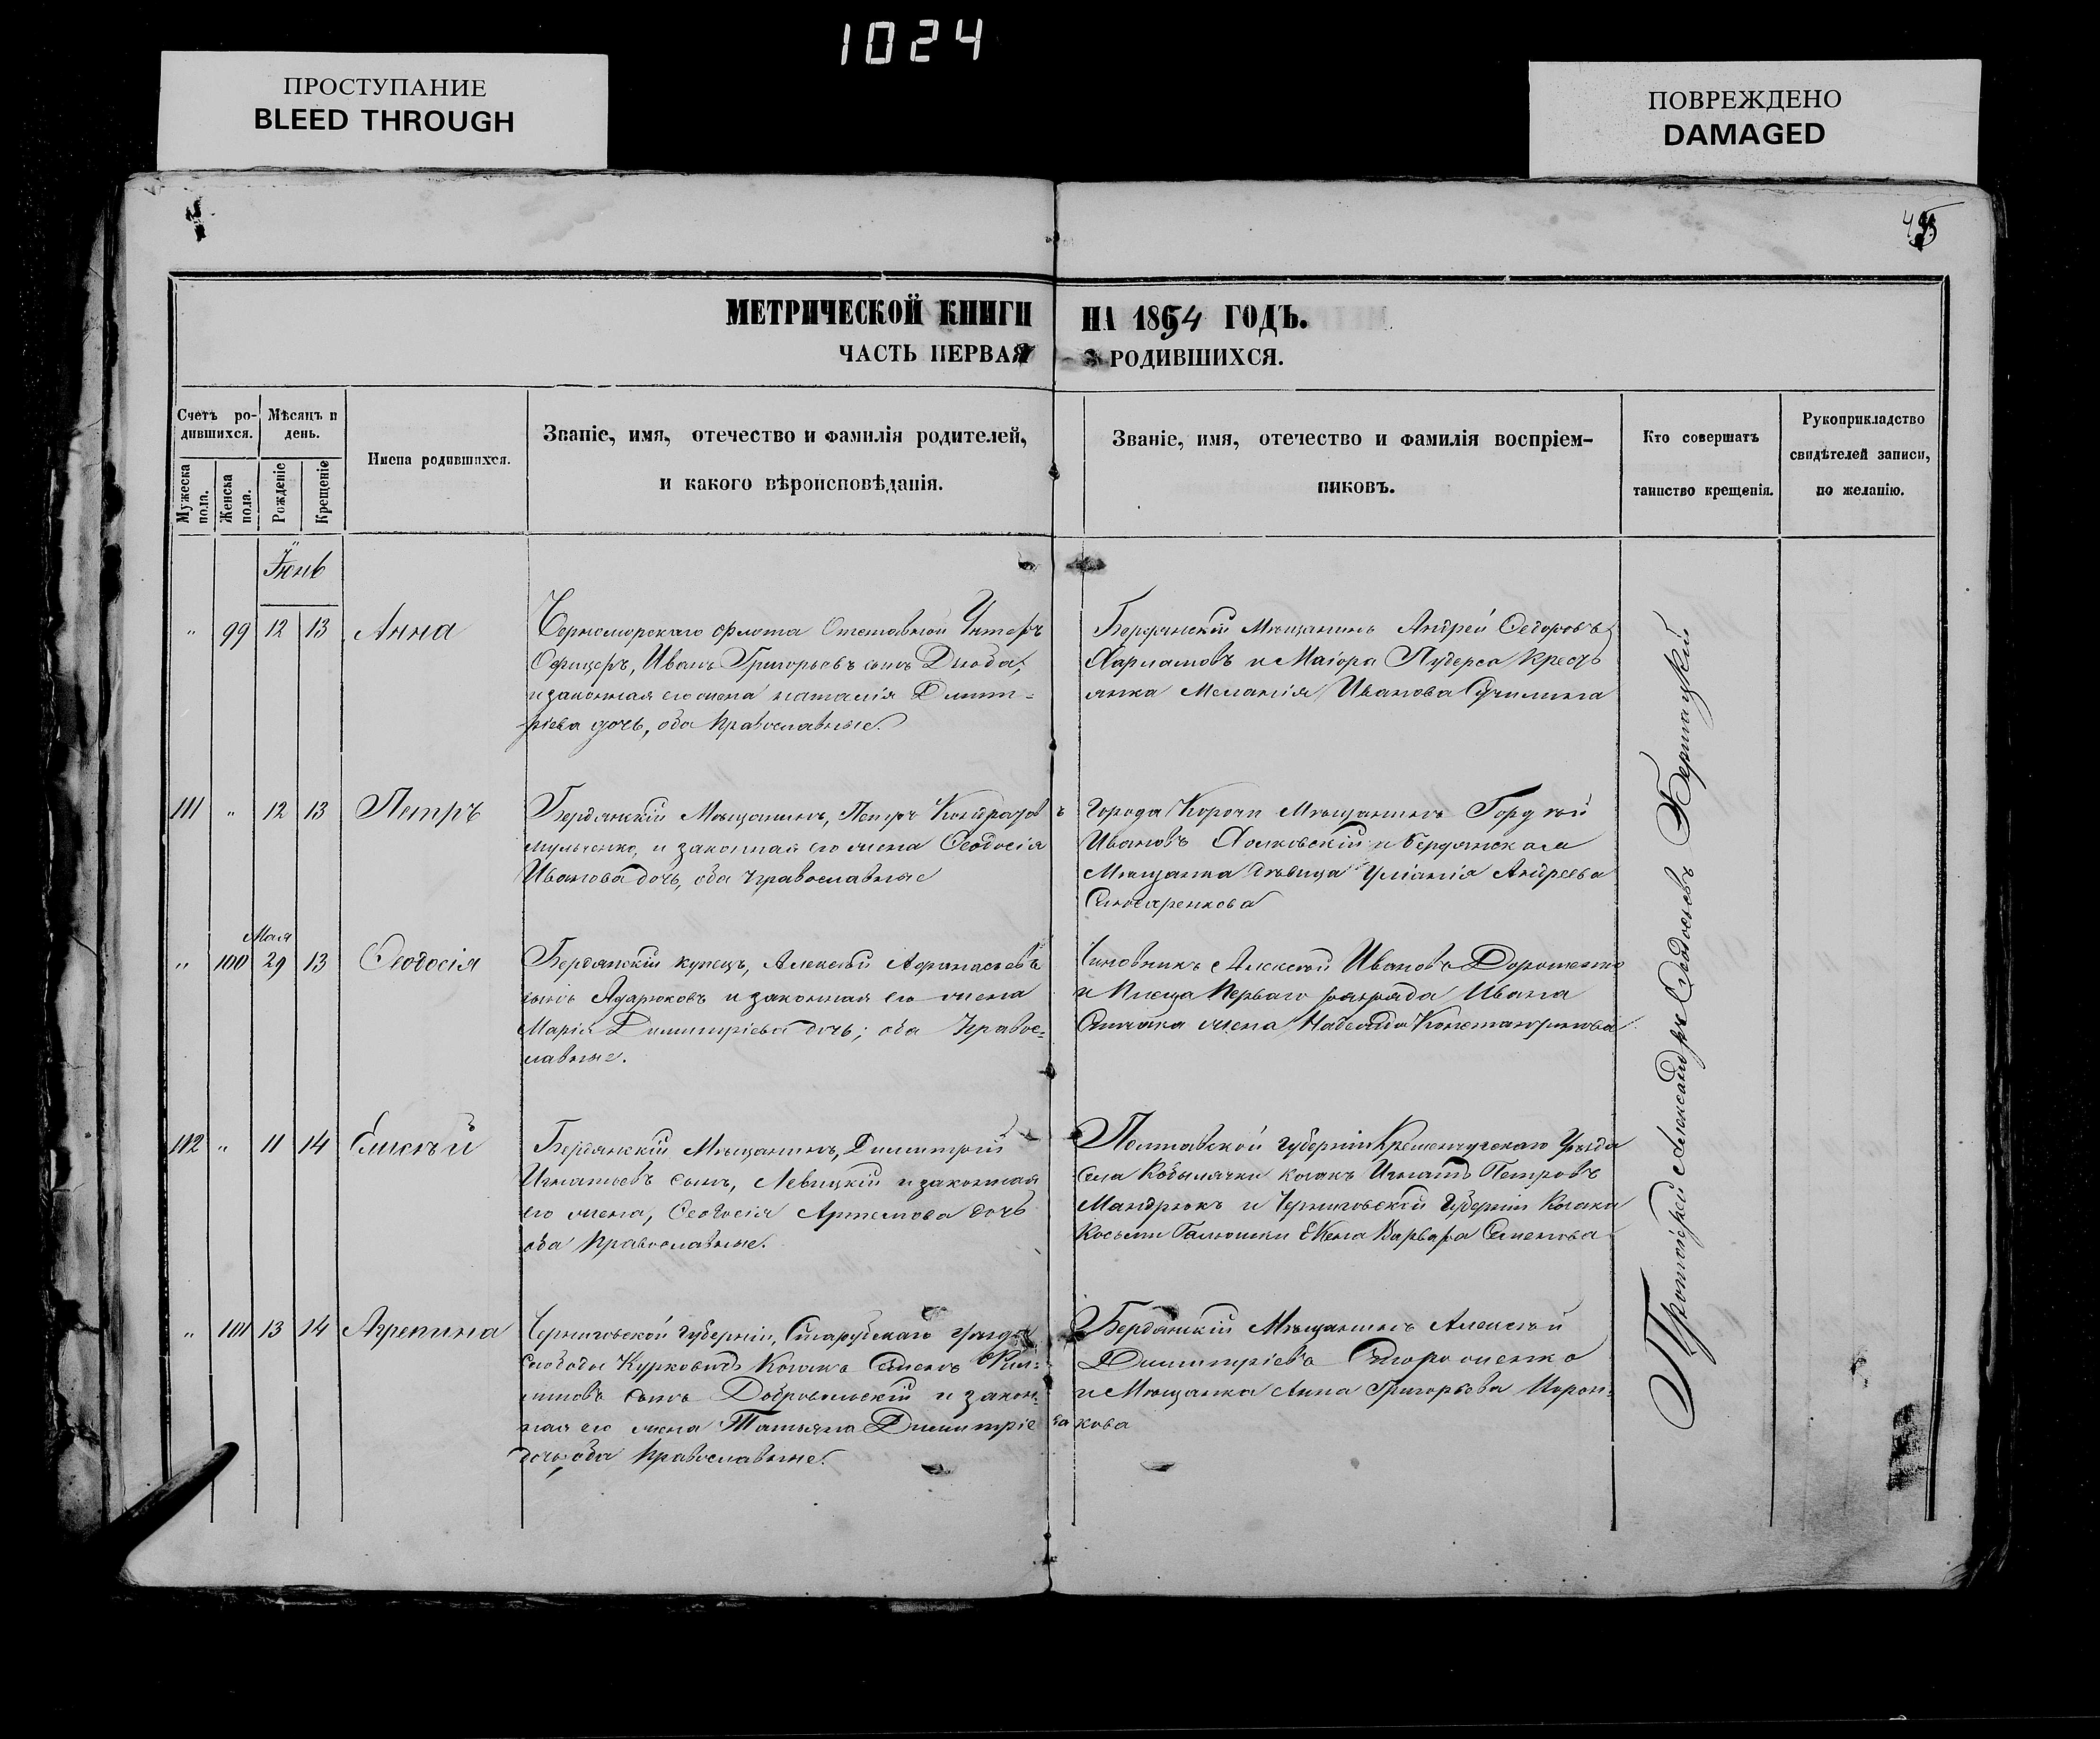 1024
ПРОСТУПАНИЕ
BLEED THROUGH
ПОВРЕЖДЕНО
DAMAGED
МЕТРИЧЕСКОЙ КНИГИ НА 1854 ГОДЪ.
ЧАСТЬ ПЕРВАЯ О РОДИВШИХСЯ.
Счетъ ро-
дившихся.
Мужеска пола.
Женска пола.
Мѣсяцъ и
день.
Рожденіе
Крещеніе
Имена родившихся.
Званіе, имя, отечество и фамилія родителей,
и какого вѣроисповѣданія.
Званіе, имя, отечество и фамилія воспріем-
никовъ.
Кто совершатъ
таинство крещенія.
Рукоприкладство
свидѣтелей записи,
по желанію.
Іюнь
" 99 12 13 Анна
Черноморскаго флота Отставной Унтеръ
Офицеръ, Иванъ Григорьевъ сынъ Дзюба,
и законная его жена Наталія Димит-
ріева дочь, оба православные.
Бердянскій Мѣщанинъ Андрей Ѳедоровъ
Харламовъ и Маіора Кресть
янка Меланія Иванова
111 " 12 13 Петръ
Бердянскій Мѣщанинъ, Петръ Кондратовъ
и законная его жена Ѳеодосія
Иванова дочь, оба православные
Города Корочи Мѣщанинъ Гордѣй
Ивановъ и Бердянская
Мѣщанка дѣвица Андреева
Слюсаренкова
Мая
" 100 29 13 Ѳеодосія
Бердянскій купецъ, Алексѣй Афанасьевъ
сынъ и законная его жена
Марія Димитріева дочь; оба Правос-
лавные.
Чиновникъ Алексѣй Ивановъ Дорошенко
и Писца Перваго разряда Ивана
жена Надежда Константинова
112 " 11 14 Елисѣй
Бердянскій Мѣщанинъ, Димитрій
Игнатьевъ сынъ, Левицкій и законная
его жена, Ѳеодосія Артемова дочь
оба Православные.
Полтавской губерніи Кременчугскаго Уѣзда
села Кобылячки козакъ Игнатъ Петровъ
Мандрюкъ и Черниговской Губерніи Козака
Косьмы Галюшки Жена Варвара Семенова
" 101 13 14 Агрепина
Черниговской губерніи, Стародубскаго уѣзда
слободы Курковичъ Козакъ Семенъ Фил-
иповъ сынъ Добровольскій и закон-
ная его жена Татьяна Димитріева
дочь, оба Православные.
Бердянскій Мѣщанинъ Алексѣй
Димитріевъ Стороженко
и Мѣщанка Анна Григорьева
кова
Протоіерей Александръ Ѳеодосьевъ